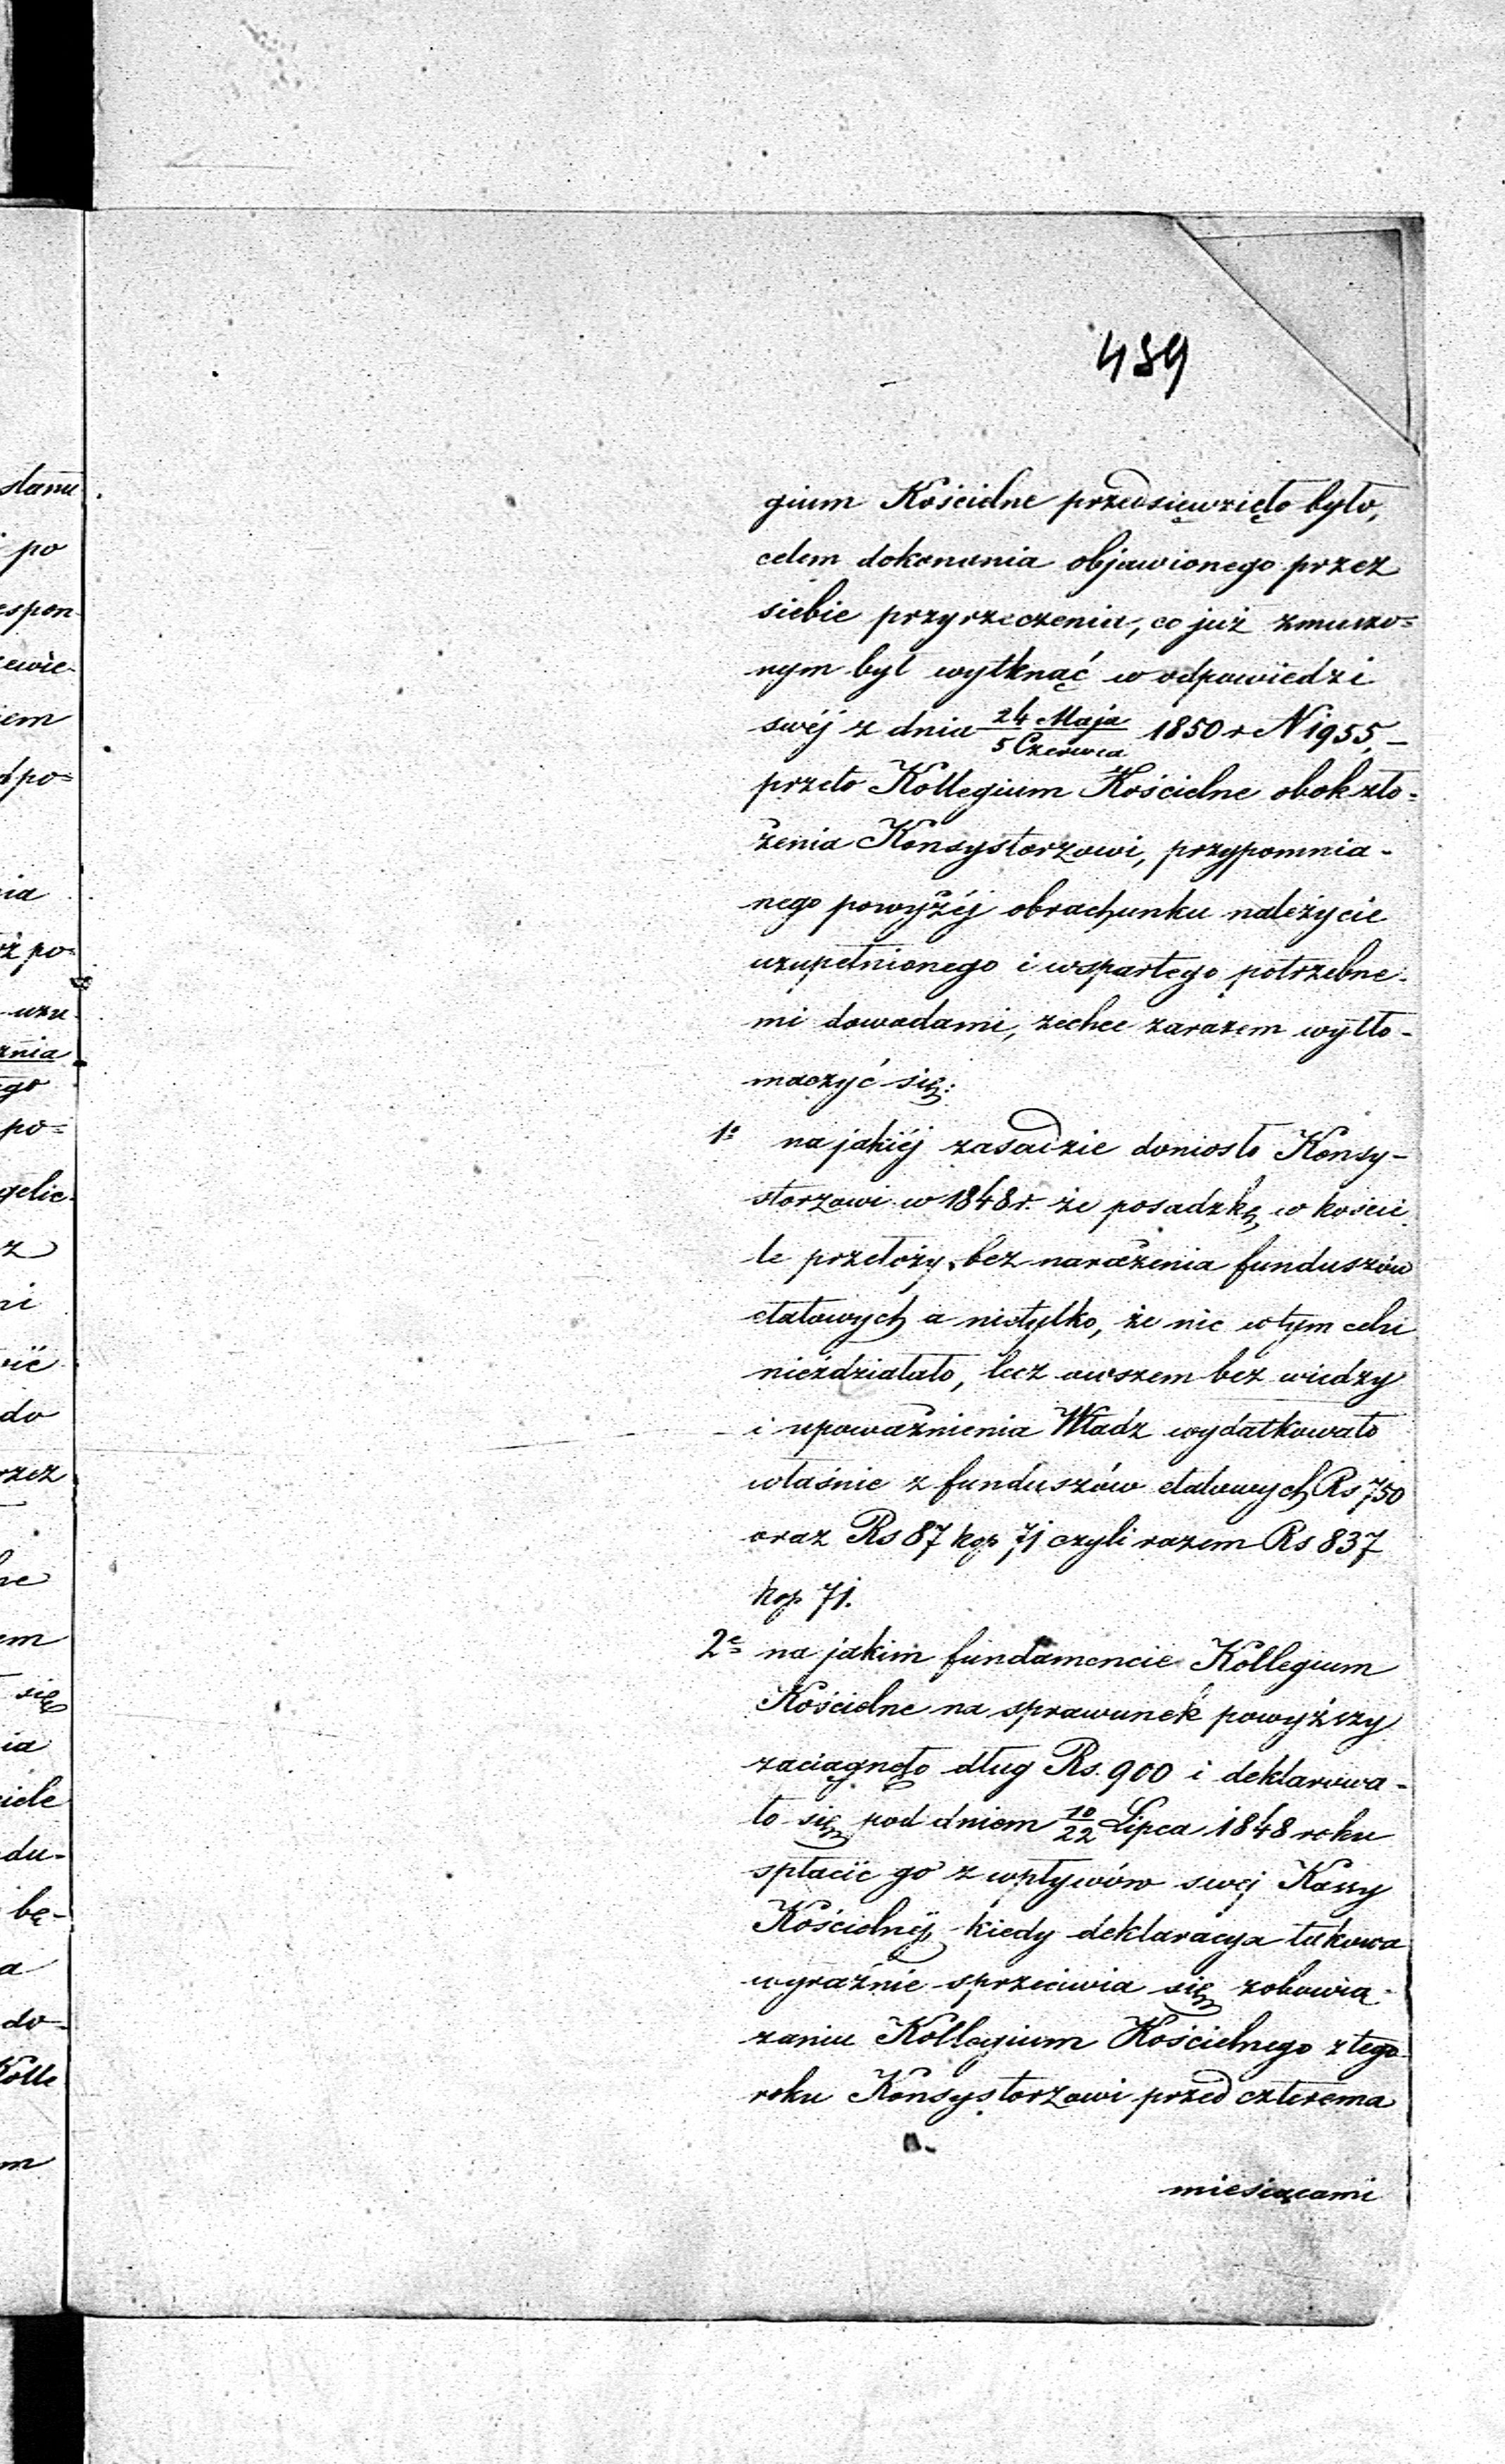 439
gium Kościelne przedsięwzięło było,
celem dokonania objawionego przez
siebie przyrzeczenia, co już zmuszo=
nym był wytknąć w odpowiedzi
swéj z dnia 24 Maja / 5 Czerwca 1850 r N 1955, –
przeto Kollegium Kościelne obok zło=
żenia Konsystorzowi, przypomnia-
nego powyżéj obrachunku należycie
uzupełnionego i wspartego potrzebne-
mi dowodami, zechce zarazem wytło-
maczyć się:
1º na jakiéj zasadzie doniosło Konsy-
storzowi w 1848 r. że posadzkę w kościе
le przełoży, bez narażenia funduszów
etatowych a nietylko, że nic w tym celu
niezdziałało, lecz owszem bez wiedzy
i upoważnienia Władz wydatkowało
właśnie z funduszów etatowych Rs 750
oraz Rs 87 kop 71 czyli razem Rs 837
kop 71.
2e na jakim fundamencie Kollegium
Kościelne na sprawunek powyższy
zaciągnęło dług Rs. 900 i deklarowa-
ło się pod dniem 10/22 Lipca 1848 roku
spłacić go z wpływów swej Kassy
Kościelnéj, kiedy deklaracya takowa
wyraźnie sprzeciwia się zobowią-
zaniu Kollegium Kościelnego z tego
roku Konsystorzowi przed czterema
miesiącami
stanu
po
espon
iem
po=
ia
po=
uzu
znia
ego
po=
gelic
z
ni
do
rzez
em
się
ia
ciele
du-
bę-
a
do-
Kolle
m